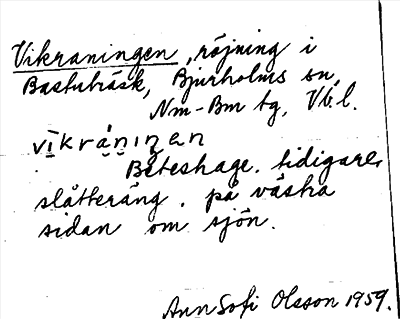 Vikraningen, röjning i
Bastuträsk, Bjurholms sn,
Nm-Bm tg, Vb.l.
vìkràniŋen
Beteshage, tidigare
slåtteräng, på västra
sidan om sjön.
Ann Sofi Olsson 1959.